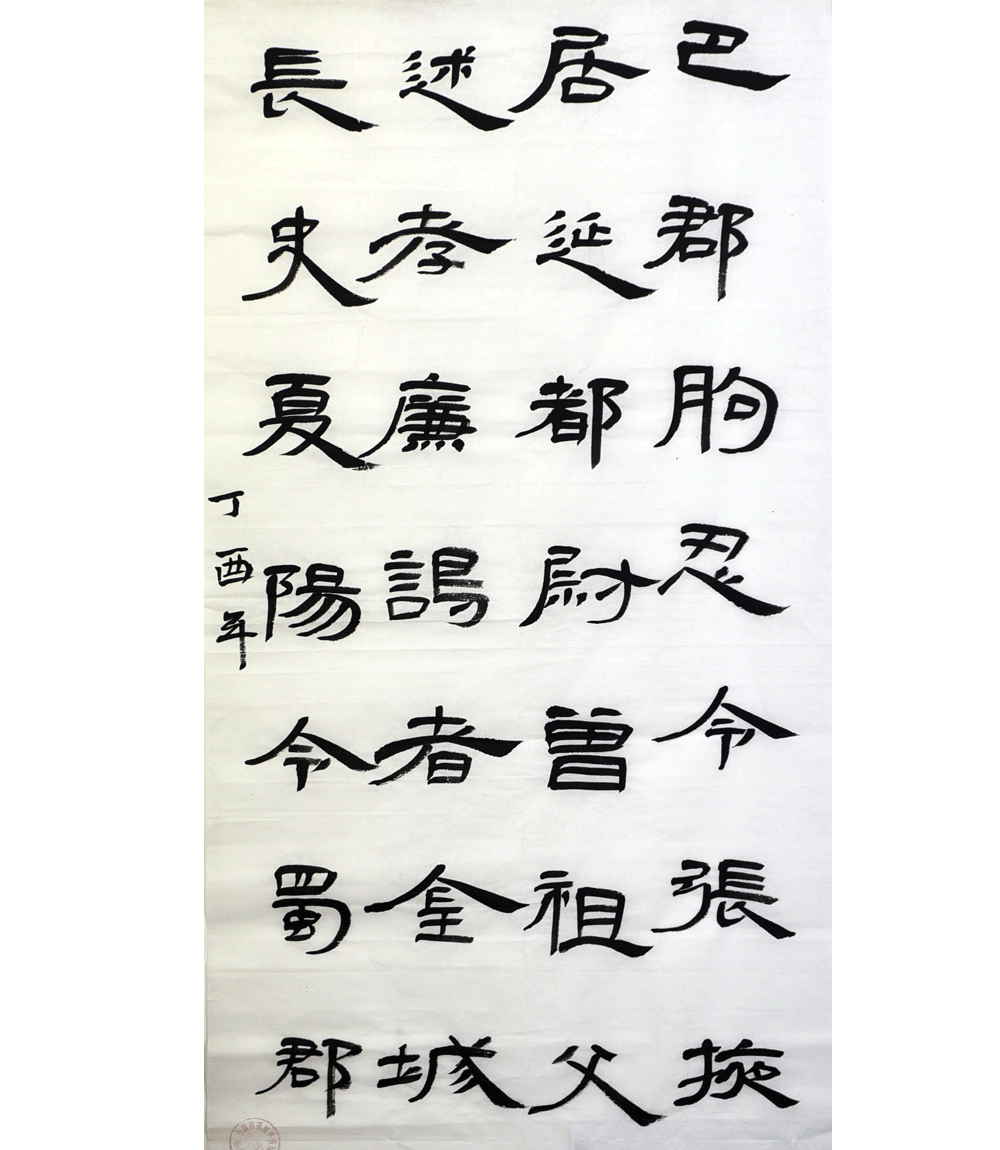 巴郡朐忍令張掖
居延都尉曾祖父
述孝廉謁者金城
長史夏陽令蜀郡
丁酉年